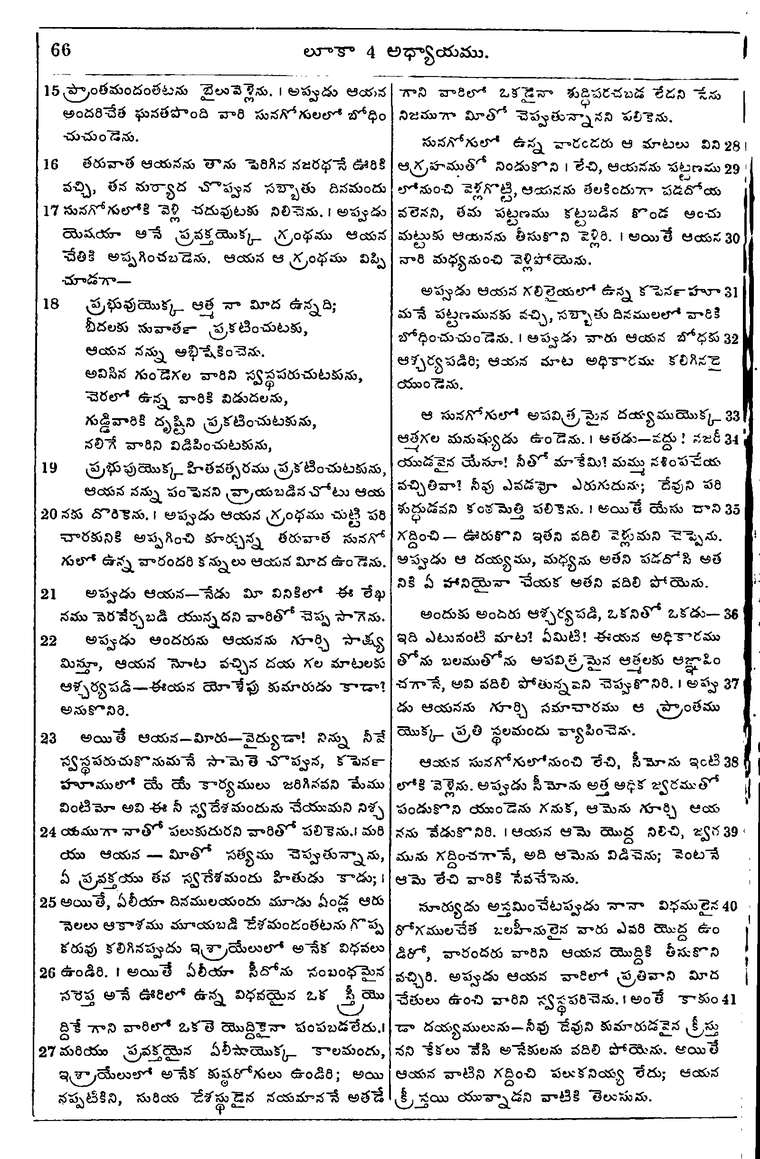 66
లూకా 4 అధ్యాయము.
15 ప్రాంతమందంతటను బైలువెళ్లెను. । అప్పుడు ఆయన
అందరిచేత ఘనతపొంది వారి సునగోగులలో బోధిం
చుచుండెను.
16 తరువాత ఆయనను తాను పెరిగిన నజరథనే ఊరికి
వచ్చి, తన మర్యాద చొప్పున సబ్బాతు దినమందు
17 సునగోగులోకి వెళ్లి చదువుటకు నిలిచెను. । అప్పుడు
యెషయా అనే ప్రవక్తయొక్క గ్రంథము ఆయన
చేతికి అప్పగించబడెను. ఆయన ఆ గ్రంథము విప్పి
చూడగా—
18 ప్రభువుయొక్క ఆత్మ నా మీద ఉన్నది;
బీదలకు సువార్త ప్రకటించుటకు,
ఆయన నన్ను అభిషేకించెను.
అవిసిన గుండెగల వారిని స్వస్థపరుచుటకును,
చెరలో ఉన్న వారికి విడుదలను,
గుడ్డివారికి దృష్టిని ప్రకటించుటకును,
నలిగే వారిని విడిపించుటకును,
19 ప్రభువుయొక్క హితవత్సరము ప్రకటించుటకును,
ఆయన నన్ను పంపెనని వ్రాయబడిన చోటు ఆయ
20 నకు దొరికెను. । అప్పుడు ఆయన గ్రంథము చుట్టి పరి
చారకునికి అప్పగించి కూర్చున్న తరువాత సునగో
గులో ఉన్న వారందరి కన్నులు ఆయన మీద ఉండెను.
21 అప్పుడు ఆయన—నేడు మీ వినికిలో ఈ లేఖ
నము నెరవేర్చబడి యున్నదని వారితో చెప్ప సాగెను.
22 అప్పుడు అందరును ఆయనను గూర్చి సాక్ష్య
మిస్తూ, ఆయన నోట వచ్చిన దయ గల మాటలకు
ఆశ్చర్యపడి—ఈయన యోశేఫు కుమారుడు కాడా?
అనుకొనిరి.
23 అయితే ఆయన—మీరు—వైద్యుడా! నిన్ను నీవే
స్వస్థపరుచుకొనుమనే సామెతె చొప్పున, కపెర్న
హూములో యే యే కార్యములు జరిగినవని మేము
వింటిమో అవి ఈ నీ స్వదేశమందును చేయుమని నిశ్చ
24 యముగా నాతో పలుకుదురని వారితో పలికెను. । మరి
యు ఆయన — మీతో సత్యము చెప్పుతున్నాను,
ఏ ప్రవక్తయు తన స్వదేశమందు హితుడు కాడు; ।
25 అయితే, ఏలీయా దినములయందు మూడు ఏండ్ల ఆరు
నెలలు ఆకాశము మూయబడి దేశమందంతటను గొప్ప
కరువు కలిగినప్పుడు ఇశ్రాయేలులో అనేక విధవలు
26 ఉండిరి. । అయితే ఏలీయా సీదోను సంబంధమైన
సరెప్త అనే ఊరిలో ఉన్న విధవయైన ఒక స్త్రీ యొ
ద్దికే గాని వారిలో ఒకతె యొద్దికైనా పంపబడలేదు. ।
27 మరియు ప్రవక్తయైన ఏలీషాయొక్క కాలమందు,
ఇశ్రాయేలులో అనేక కుష్ఠరోగులు ఉండిరి; అయి
నప్పటికిని, సురియ దేశస్థుడైన నయమానునే అతడే
గాని వారిలో ఒకడైనా శుద్ధిపరచబడ లేదని నేను
నిజముగా మీతో చెప్పుతున్నానని పలికెను.
సునగోగులో ఉన్న వారందరు ఆ మాటలు విని 28
ఆగ్రహముతో నిండుకొని । లేచి, ఆయనను పట్టణము 29
లోనుంచి వెళ్లగొట్టి, ఆయనను తలకిందుగా పడదోయ
వలెనని, తమ పట్టణము కట్టబడిన కొండ అంచు
మట్టుకు ఆయనను తీసుకొని వెళ్లిరి. । అయితే ఆయన 30
వారి మధ్యనుంచి వెళ్లిపోయెను.
అప్పుడు ఆయన గలిలైయలో ఉన్న కపెర్నహూ 31
మనే పట్టణమునకు వచ్చి, సబ్బాతు దినములలో వారికి
బోధించుచుండెను. । అప్పుడు వారు ఆయన బోధకు 32
ఆశ్చర్యపడిరి; ఆయన మాట అధికారము కలిగినదై
యుండెను.
ఆ సునగోగులో అపవిత్రమైన దయ్యముయొక్క 33
ఆత్మగల మనుష్యుడు ఉండెను. । అతడు—వద్దు! నజరీ 34
యుడవైన యేసూ! నీతో మాకేమి? మమ్ము నశింపచేయ
వచ్చితివా? నీవు ఎవడవో ఎరుగుదును; దేవుని పరి
శుద్ధుడవని కంఠమెత్తి పలికెను. । అయితే యేసు దాని 35
గద్దించి — ఊరుకొని ఇతని వదిలి వెళ్లుమని చెప్పెను.
అప్పుడు ఆ దయ్యము, మధ్యను అతని పడదోసి అత
నికి ఏ హానియైనా చేయక అతని వదిలి పోయెను.
అందుకు అందరు ఆశ్చర్యపడి, ఒకనితో ఒకడు— 36
ఇది ఎటువంటి మాట? ఏమిటి! ఈయన అధికారము
తోను బలముతోను అపవిత్రమైన ఆత్మలకు ఆజ్ఞాపిం
చగానే, అవి వదిలి పోతున్నవని చెప్పుకొనిరి. । అప్పు 37
డు ఆయనను గూర్చి సమాచారము ఆ ప్రాంతము
యొక్క ప్రతి స్థలమందు వ్యాపించెను.
ఆయన సునగోగులోనుంచి లేచి, సీమోను ఇంటి 38
లోకి వెళ్లెను. అప్పుడు సీమోను అత్త అధిక జ్వరముతో
పండుకొని యుండెను గనుక, ఆమెను గూర్చి ఆయ
నను వేడుకొనిరి. । ఆయన ఆమె యొద్ద నిలిచి, జ్వర 39
మును గద్దించగానే, అది ఆమెను విడిచెను; వెంటనే
ఆమె లేచి వారికి సేవచేసెను.
సూర్యుడు అస్తమించేటప్పుడు నానా విధములైన 40
రోగములచేత బలహీనులైన వారు ఎవరి యొద్ద ఉం
డిరో, వారందరు వారిని ఆయన యొద్దికి తీసుకొని
వచ్చిరి. అప్పుడు ఆయన వారిలో ప్రతివాని మీద
చేతులు ఉంచి వారిని స్వస్థపరిచెను. । అంతే కాకుం 41
డా దయ్యములును—నీవు దేవుని కుమారుడవైన క్రీస్తు
నని కేకలు వేసి అనేకులను వదిలి పోయెను. అయితే
ఆయన వాటిని గద్దించి పలుకనియ్య లేదు; ఆయన
క్రీస్తయి యున్నాడని వాటికి తెలుసును.